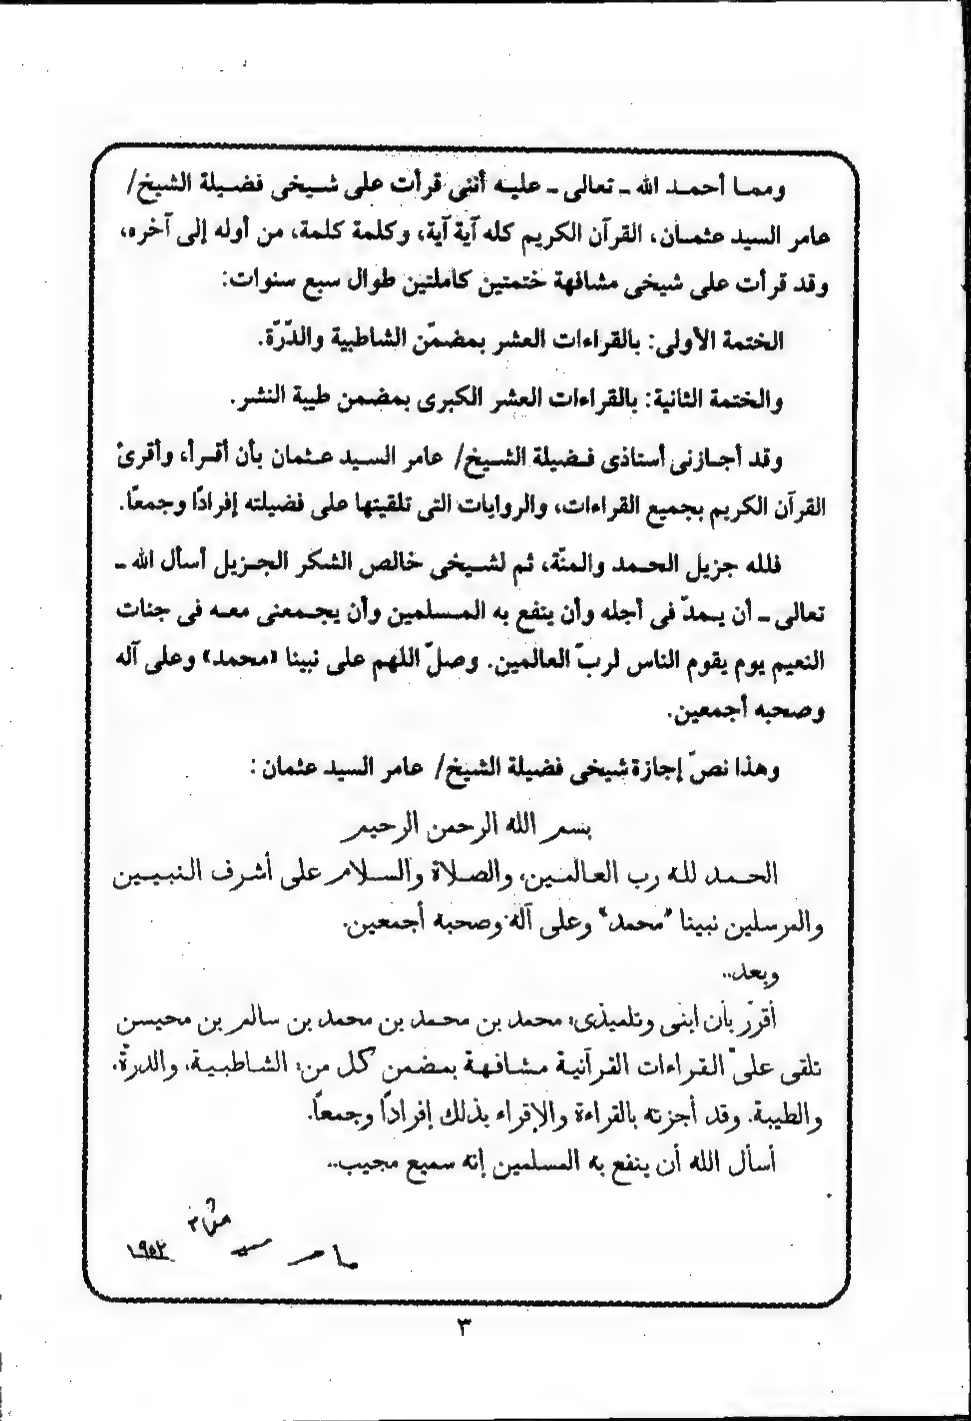 ومما أحمد الله ـ تعالى ـ عليه أننى قرأت على شيخى فضيلة الشيخ/
عامر السيد عثمان، القرآن الكريم كله آية آية، وكلمة كلمة، من أوله إلى آخره،
وقد قرأت على شيخى مشافهة ختمتين كاملتين طوال سبع سنوات:
الختمة الأولى: بالقراءات العشر بمضمّن الشاطبية والدّرّة.
والختمة الثانية: بالقراءات العشر الكبرى بمضمن طيبة النشر.
وقد أجازنى أستاذى فضيلة الشيخ/ عامر السيد عثمان بأن أقرأ، وأقرئ
القرآن الكريم بجميع القراءات، والروايات التى تلقيتها على فضيلته إفرادًا وجمعًا.
فلله جزيل الحمد والمنّة، ثم لشيخى خالص الشكر الجزيل أسأل الله ـ
تعالى ـ أن يمدّ فى أجله وأن ينفع به المسلمين وأن يجمعنى معه فى جنات
النعيم يوم يقوم الناس لربّ العالمين. وصلّ اللهم على نبينا «محمد» وعلى آله
وصحبه أجمعين.
وهذا نصّ إجازة شيخى فضيلة الشيخ/ عامر السيد عثمان :
بسم الله الرحمن الرحيم
الحمد لله رب العالمين، والصلاة والسلام على أشرف النبيين
والمرسلين نبينا "محمد" وعلى آله وصحبه أجمعين.
وبعد..
أقرّر بأن ابنى وتلميذى: محمد بن محمد بن محمد بن سالم بن محيسن
تلقى علىّ القراءات القرآنية مشافهة بمضمن كل من: الشاطبية، والدرّة،
والطيبة. وقد أجزته بالقراءة والإقراء بذلك إفرادًا وجمعاً.
أسأل الله أن ينفع به المسلمين إنه سميع مجيب..
عامر سيد عثمان
١٩٥٢
٣